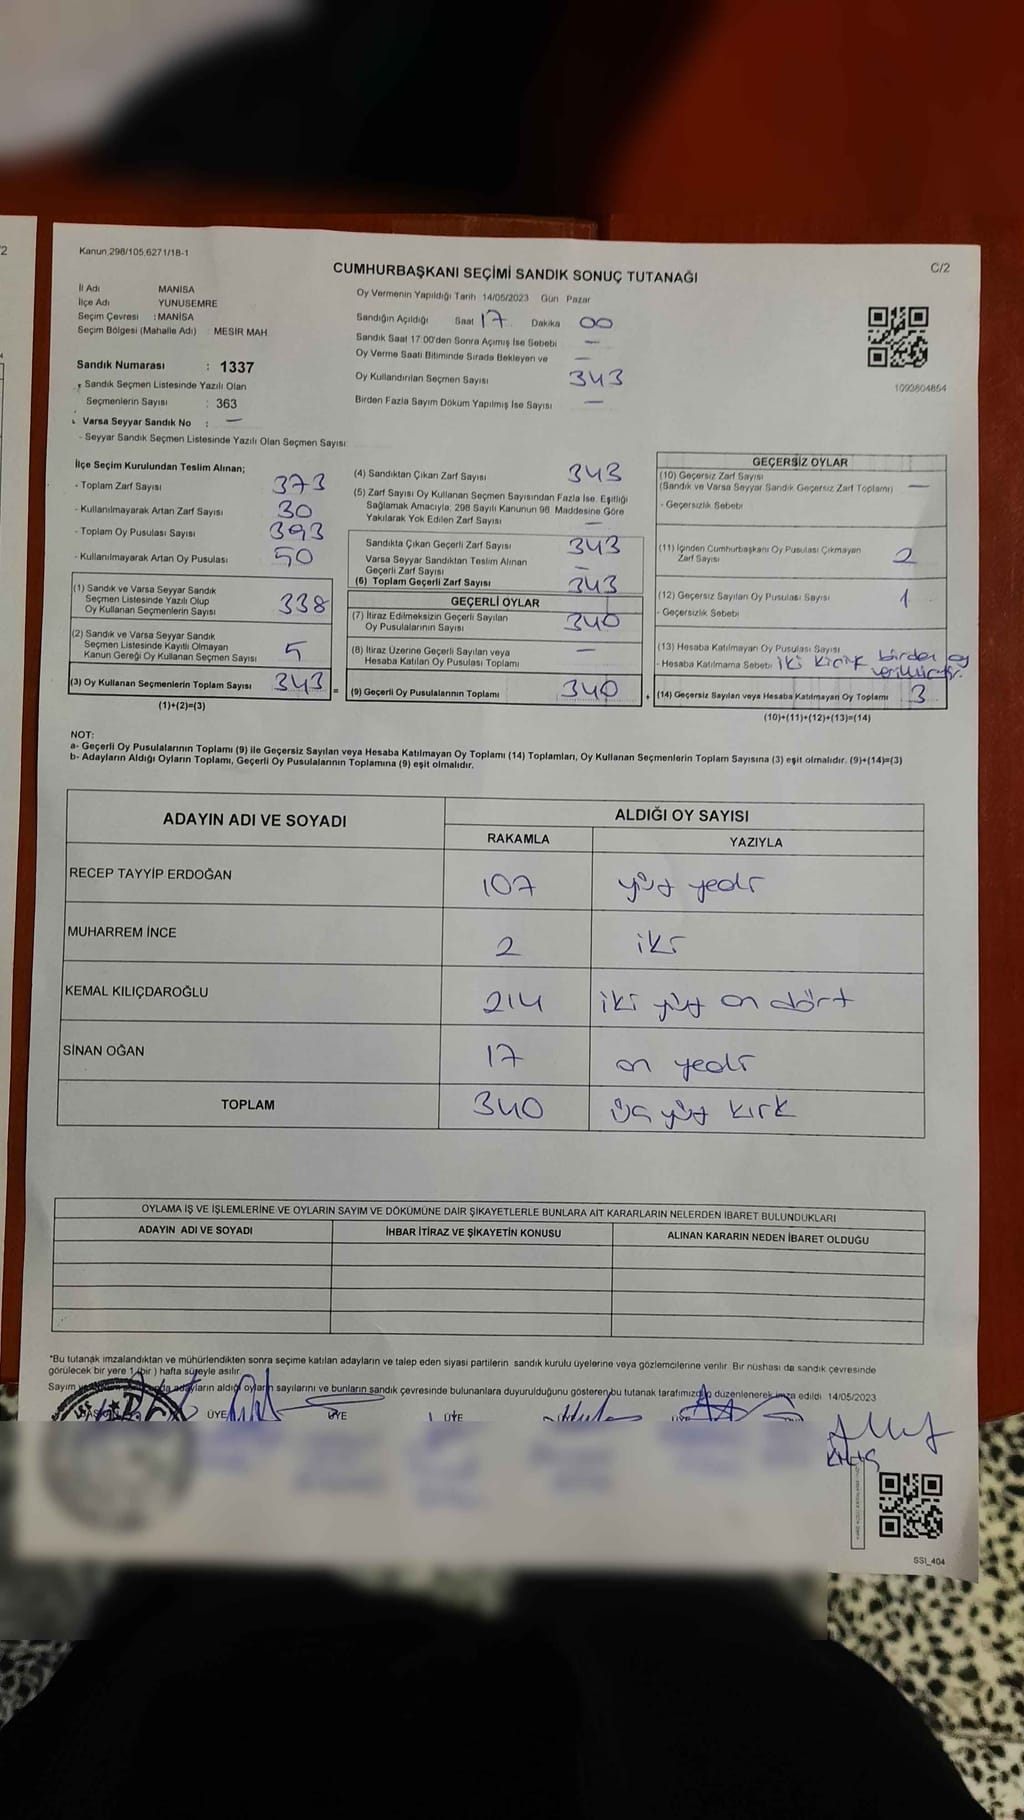 /2
Kanun,298/105,6271/18-1
C/2
CUMHURBAŞKANI SEÇİMİ SANDIK SONUÇ TUTANAĞI
İl Adı MANİSA
İlçe Adı YUNUSEMRE
Seçim Çevresi : MANİSA
Seçim Bölgesi (Mahalle Adı) : MESİR MAH
Sandık Numarası : 1337
Sandık Seçmen Listesinde Yazılı Olan
Seçmenlerin Sayısı : 363
Varsa Seyyar Sandık No : —
- Seyyar Sandık Seçmen Listesinde Yazılı Olan Seçmen Sayısı:
Oy Vermenin Yapıldığı Tarih 14/05/2023 Gün Pazar
Sandığın Açıldığı Saat 17 Dakika 00
Sandık Saat 17:00'den Sonra Açımış İse Sebebi —
Oy Verme Saati Bitiminde Sırada Bekleyen ve —
Oy Kullandırılan Seçmen Sayısı 343
Birden Fazla Sayım Döküm Yapılmış İse Sayısı —
1093604864
İlçe Seçim Kurulundan Teslim Alınan;
- Toplam Zarf Sayısı 373
- Kullanılmayarak Artan Zarf Sayısı 30
- Toplam Oy Pusulası Sayısı 393
- Kullanılmayarak Artan Oy Pusulası 50
(1) Sandık ve Varsa Seyyar Sandık
Seçmen Listesinde Yazılı Olup
Oy Kullanan Seçmenlerin Sayısı 338
(2) Sandık ve Varsa Seyyar Sandık
Seçmen Listesinde Kayıtlı Olmayan
Kanun Gereği Oy Kullanan Seçmen Sayısı 5
(3) Oy Kullanan Seçmenlerin Toplam Sayısı 343 =
(1)+(2)=(3)
(4) Sandıktan Çıkan Zarf Sayısı 343
(5) Zarf Sayısı Oy Kullanan Seçmen Sayısından Fazla İse, Eşitliği
Sağlamak Amacıyla, 298 Sayılı Kanunun 98. Maddesine Göre
Yakılarak Yok Edilen Zarf Sayısı —
Sandıkta Çıkan Geçerli Zarf Sayısı 343
Varsa Seyyar Sandıktan Teslim Alınan
Geçerli Zarf Sayısı —
(6) Toplam Geçerli Zarf Sayısı 343
GEÇERLİ OYLAR
(7) İtiraz Edilmeksizin Geçerli Sayılan
Oy Pusulalarının Sayısı 340
(8) İtiraz Üzerine Geçerli Sayılan veya
Hesaba Katılan Oy Pusulası Toplamı —
(9) Geçerli Oy Pusulalarının Toplamı 340 +
GEÇERSİZ OYLAR
(10) Geçersiz Zarf Sayısı
(Sandık ve Varsa Seyyar Sandık Geçersiz Zarf Toplamı) —
- Geçersizlik Sebebi
(11) İçinden Cumhurbaşkanı Oy Pusulası Çıkmayan
Zarf Sayısı 2
(12) Geçersiz Sayılan Oy Pusulası Sayısı 1
- Geçersizlik Sebebi
(13) Hesaba Katılmayan Oy Pusulası Sayısı
- Hesaba Katılmama Sebebi iki kişiye birden oy
verilmiştir.
(14) Geçersiz Sayılan veya Hesaba Katılmayan Oy Toplamı 3
(10)+(11)+(12)+(13)=(14)
NOT:
a- Geçerli Oy Pusulalarının Toplamı (9) ile Geçersiz Sayılan veya Hesaba Katılmayan Oy Toplamı (14) Toplamları, Oy Kullanan Seçmenlerin Toplam Sayısına (3) eşit olmalıdır. (9)+(14)=(3)
b- Adayların Aldığı Oyların Toplamı, Geçerli Oy Pusulalarının Toplamına (9) eşit olmalıdır.
ADAYIN ADI VE SOYADI
ALDIĞI OY SAYISI
RAKAMLA YAZIYLA
RECEP TAYYİP ERDOĞAN 107 yüz yedi
MUHARREM İNCE 2 iki
KEMAL KILIÇDAROĞLU 214 iki yüz on dört
SİNAN OĞAN 17 on yedi
TOPLAM 340 üç yüz kırk
OYLAMA İŞ VE İŞLEMLERİNE VE OYLARIN SAYIM VE DÖKÜMÜNE DAİR ŞİKAYETLERLE BUNLARA AİT KARARLARIN NELERDEN İBARET BULUNDUKLARI
ADAYIN ADI VE SOYADI İHBAR İTİRAZ VE ŞİKAYETİN KONUSU ALINAN KARARIN NEDEN İBARET OLDUĞU
*Bu tutanak imzalandıktan ve mühürlendikten sonra seçime katılan adayların ve talep eden siyasi partilerin sandık kurulu üyelerine veya gözlemcilerine verilir. Bir nüshası da sandık çevresinde
görülecek bir yere 1 (bir ) hafta süreyle asılır.
Sayım ve adayların aldığı oyların sayılarını ve bunların sandık çevresinde bulunanlara duyurulduğunu gösteren bu tutanak tarafımızdan düzenlenerek imza edildi. 14/05/2023
ÜYE ÜYE ÜYE
SSİ_404